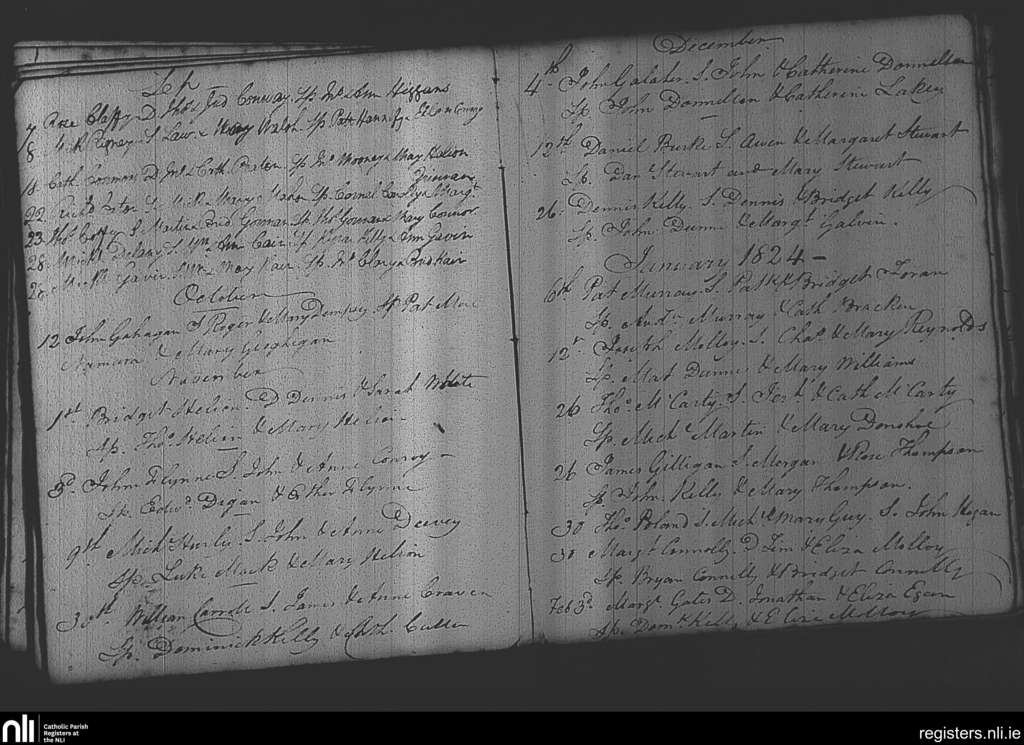 Sep
7 Rose Claffy D Thos & Jud Conway. Sp & Ann Higgins
8 S Law & Mary Walsh Sp Patt
18 Cath D & Cath Sp Mooney & May Helion
22 S Mick & Mary Sp
23 Thos Coffey S Martin & Brid Gorman Sp Thos Gorman & May Connor
28 Michl Delany S Wm & Ann Cair Sp & Ann Gavin
28 Gavin S & May Kair Sp & Brid Kair
October
12 John Gahagan S Roger & Mary Dempsy Sp Pat Mac
Namara & Mary Geoghigan
November
1st Bridget Helion D Dennis & Sarah
Sp. Thos Helion & Mary Helion
3d. John Flynne S. John & Anne Conroy
Sp. Edwd Degan & Esther Flynne
9th Mich Hurly S. John & Anne Deevey
Sp. Luke Mack & Mary Helion
30th William Carroll S. James & Anne Craven
Sp. Dominick Kelly & Cath. Cullen
December
4th John Galaher. S. John & Catherine Donnellan
Sp. John Donnellan & Catherine Lakey
12th Daniel Burke S. Awen & Margaret Stewart
Sp. Danl Stewart and Mary Stewart
26. Dennis Kelly. S. Dennis & Bridget Kelly
Sp. John Dunne & Margt Galvin.
January 1824 –
6th Pat Murray S Patk & Bridget Foran
Sp. Andw Murray & Cath Bracken
12th Joseph Molloy. S. Chas & Mary Reynolds
Sp. Mat Dunne & Mary Williams
26 Thos McCarty. S. Josh & Cath McCarty
Sp. Mick Martin & Mary Donohoe
26 James Gilligan S Morgan & Rose Thompson
Sp John Kelly & Mary Thompson.
30 Thos Poland S. Mich & Mary Guy. S. John Hogan
30 Margt Connolly. D Tim & Eliza Molloy
Sp. Bryan Connolly & Bridget Connolly
Feb 3d. Margt Gates D. Jonathan & Eliza Egan
Sp. Domk Kelly & Eliza Molloy
nli
Catholic Parish
Registers at
the NLI
registers.nli.ie